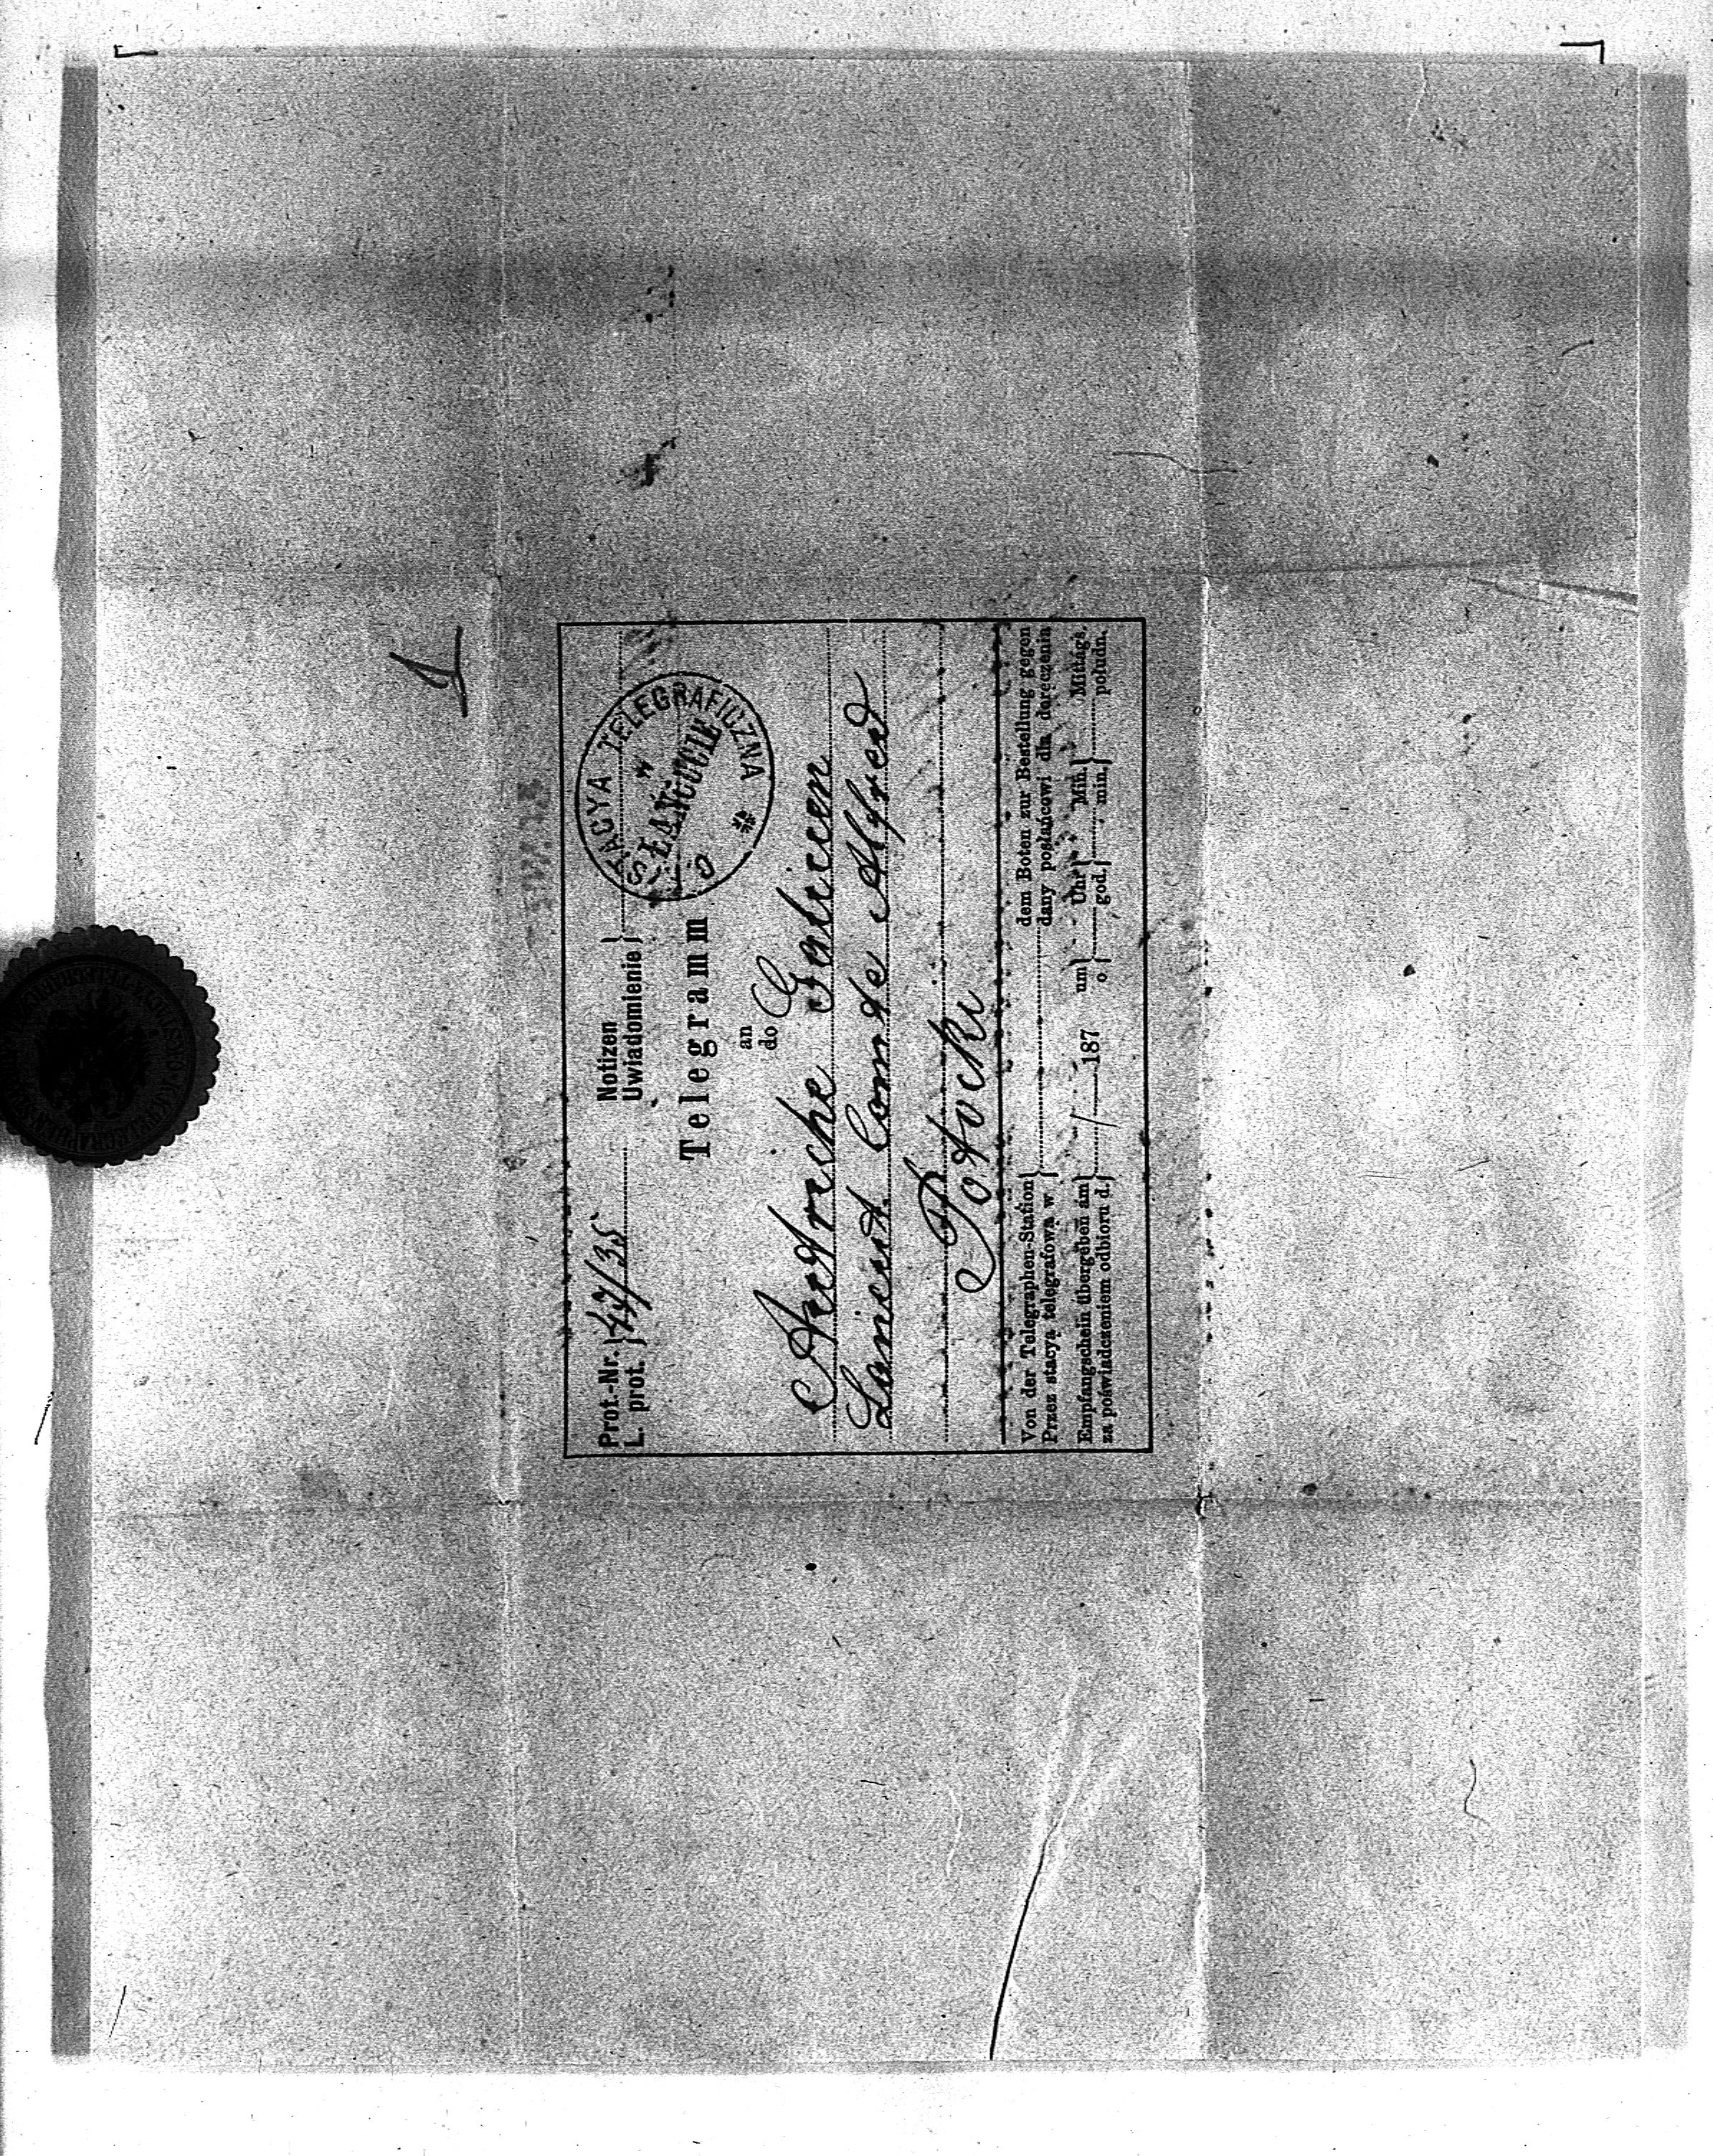 1
Prot.-Nr. } 47/35 Notizen
L. prot. } Uwiadomienie }
STACYA TELEGRAFICZNA
w
ŁAŃCUCIE
Telegramm
an
do
Autriche Galicien
Lanieut. Comte Alfred
Potocki
Von der Telegraphen-Station } dem Boten zur Bestellung gegen
Przez stacyą telegrafową w } dany posłańcowi dla doręczenia
Empfangschein übergeben am } / 187 um } Uhr } Min. } Mittags.
za poświadczeniem odbioru d. } o } god. } min. } połudn.